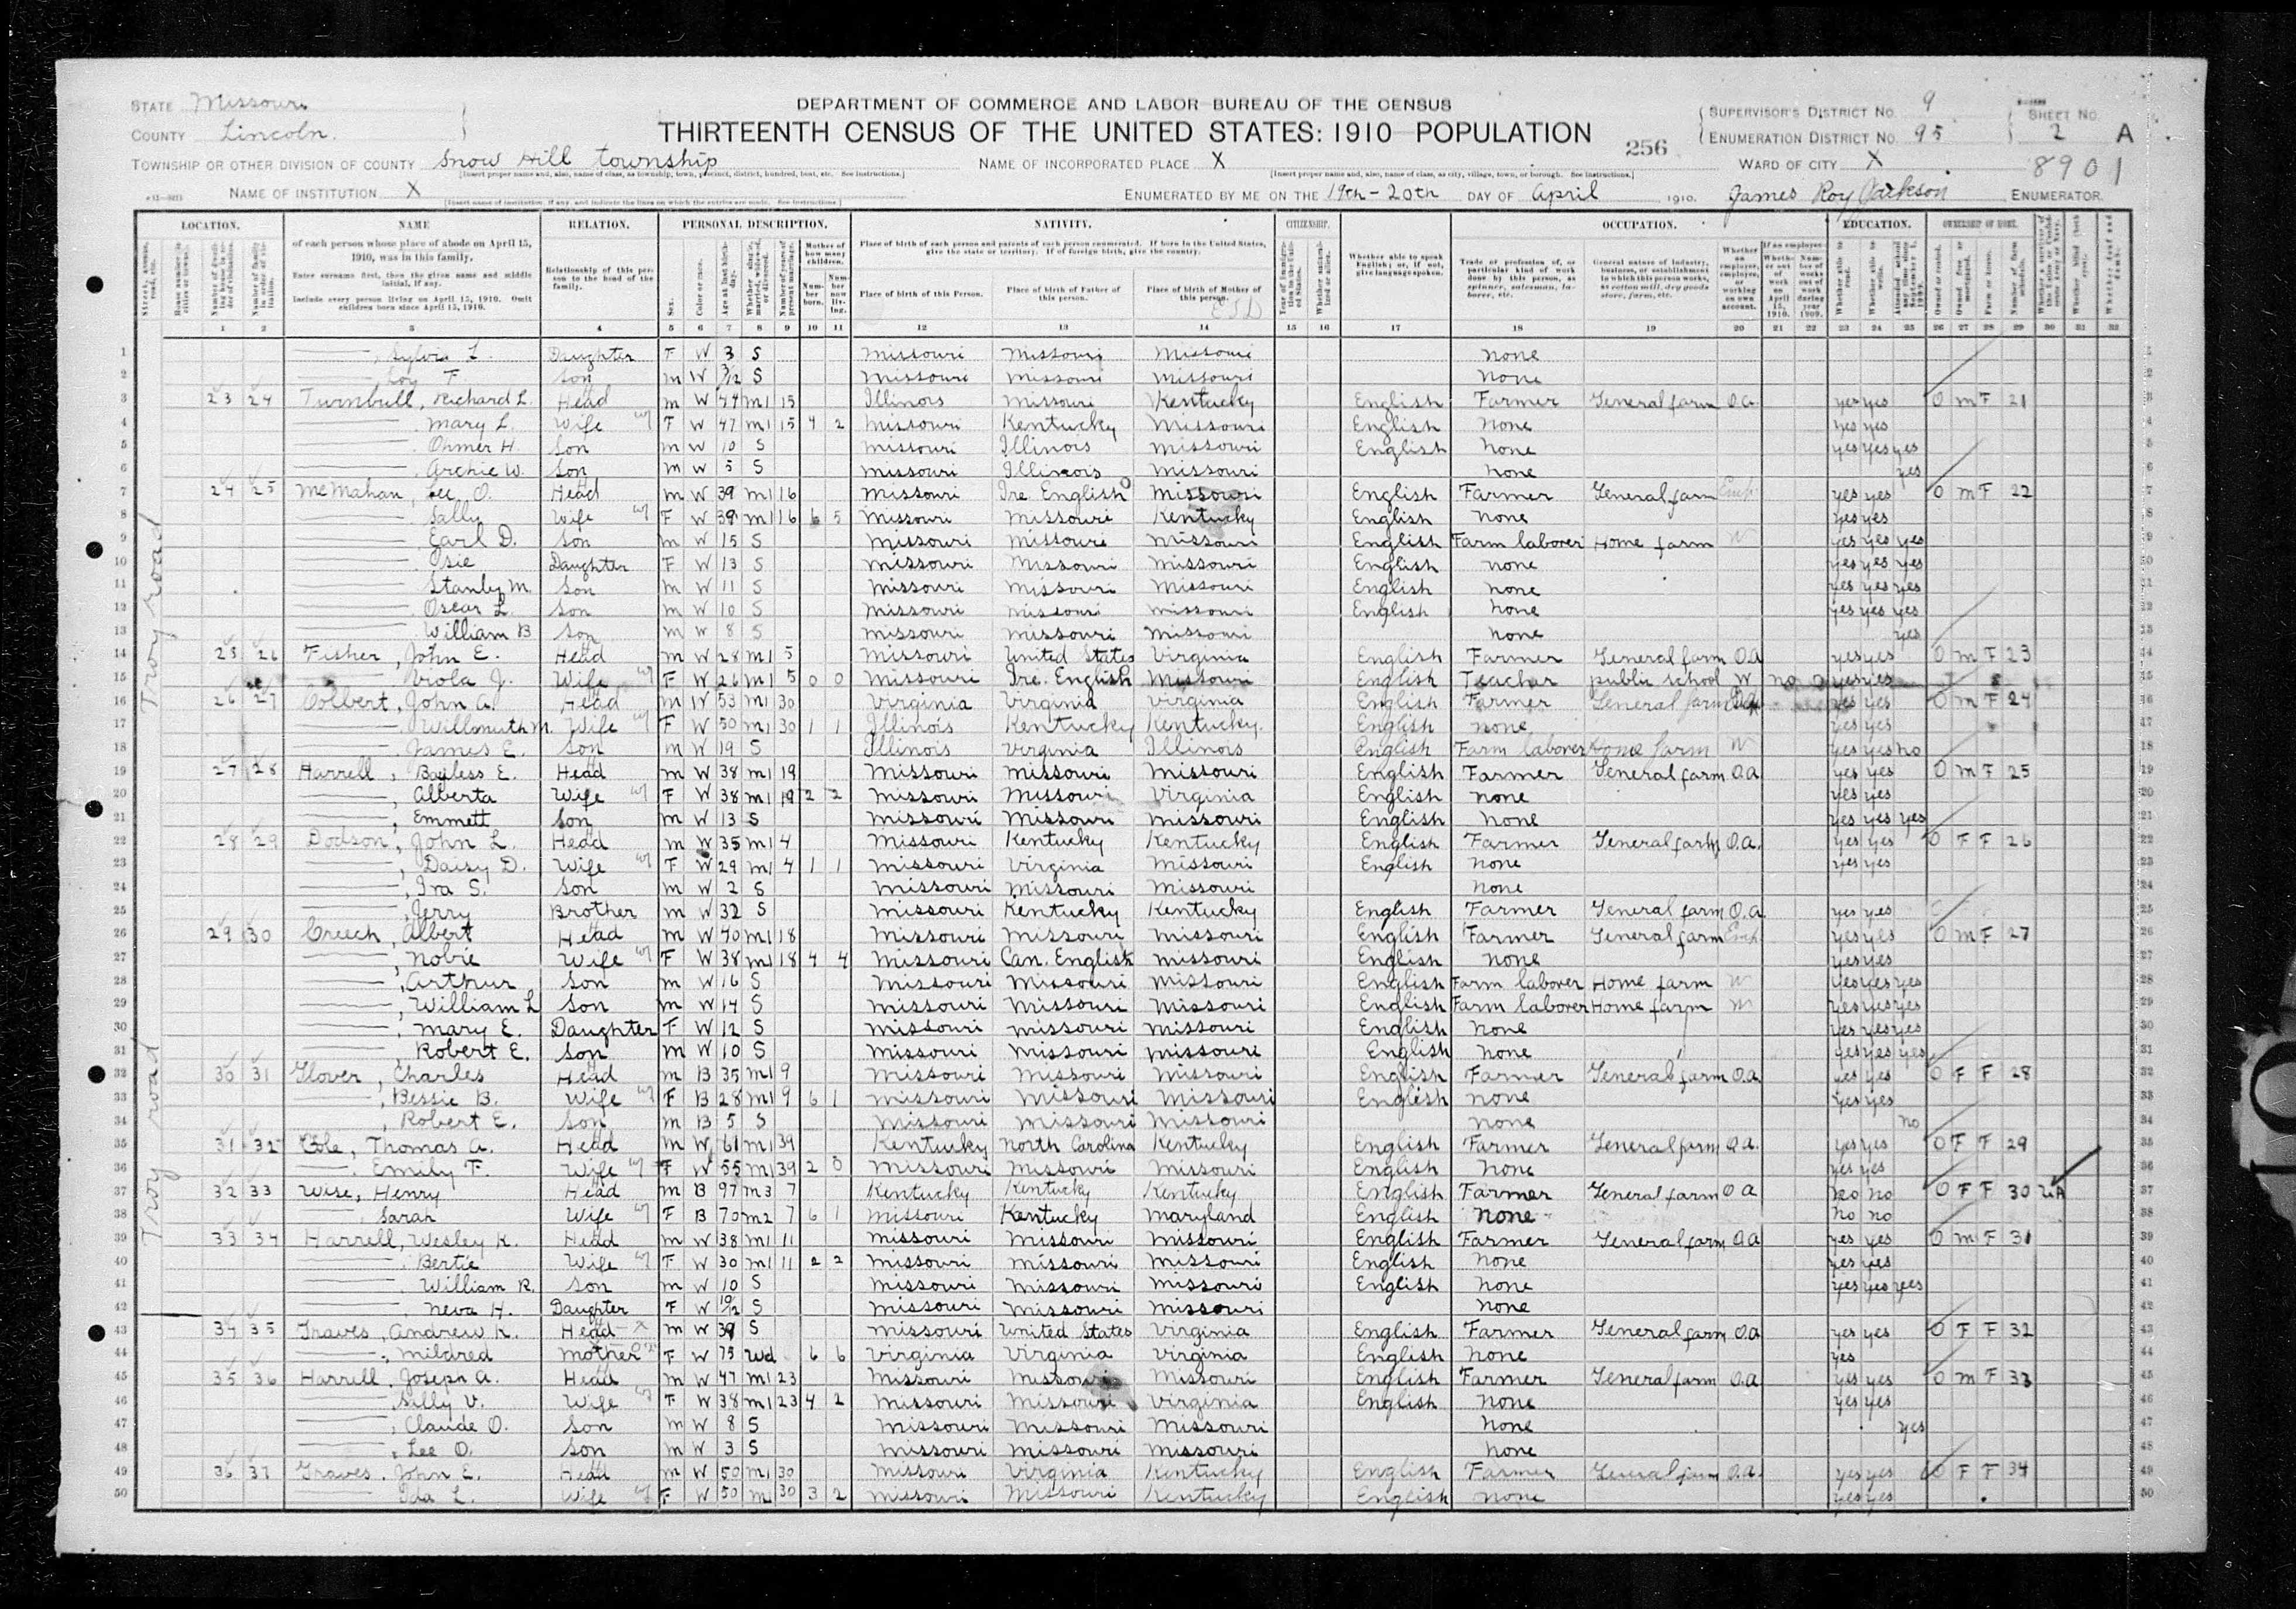 STATE Missouri
COUNTY Lincoln.
TOWNSHIP OR OTHER DIVISION OF COUNTY Snow Hill township
[Insert proper name and, also, name of class, as township, town, precinct, district, hundred, beat, etc. See instructions.]
NAME OF INSTITUTION X
[Insert name of institution, if any, and indicate the lines on which the entries are made. See instructions.]
DEPARTMENT OF COMMERCE AND LABOR-BUREAU OF THE CENSUS
THIRTEENTH CENSUS OF THE UNITED STATES: 1910 POPULATION
256
NAME OF INCORPORATED PLACE X
[Insert proper name and, also, name of class, as city, village, town, or borough. See instructions.]
ENUMERATED BY ME ON THE 19th-20th DAY OF April 1910. James Roy Jackson ENUMERATOR.
SUPERVISOR'S DISTRICT NO. 9
ENUMERATION DISTRICT NO. 95
SHEET NO. 2 A
WARD OF CITY X
8901
LOCATION. NAME RELATION. PERSONAL DESCRIPTION. NATIVITY. CITIZENSHIP. OCCUPATION. EDUCATION. OWNERSHIP OF HOME.
of each person whose place of abode on April 15, 1910, was in this family.
Enter surname first, then the given name and middle initial, if any.
Include every person living on April 15, 1910. Omit children born since April 15, 1910.
Relationship of this person to the head of the family.
Place of birth of each person and parents of each person enumerated. If born in the United States, give the state or territory. If of foreign birth, give the country.
Place of birth of this Person. Place of birth of Father of this person. Place of birth of Mother of this person.
1 2 3 4 5 6 7 8 9 10 11 12 13 14 15 16 17 18 19 20 21 22 23 24 25 26 27 28 29 30 31 32
Troy road
1 Sylvia L. Daughter F W 3 S Missouri Missouri Missouri none
2 F. Son m W 3/12 S Missouri Missouri Missouri none
3 23 24 Turnbull, Richard L. Head m W 44 m1 15 Illinois Missouri Kentucky English Farmer General farm O.a yes yes O m F 21
4 Mary L. Wife F W 47 m1 15 4 2 Missouri Kentucky Missouri English none yes yes
5 Ohmer H. Son m W 10 S Missouri Illinois Missouri English none yes yes yes
6 Archie W. Son m W 5 S Missouri Illinois Missouri none yes
7 24 25 McMahan, Lee O. Head m W 39 m1 16 Missouri Ire. English Missouri English Farmer General farm Emp yes yes O m F 22
8 Sally Wife F W 39 m1 16 6 5 Missouri Missouri Kentucky English none yes yes
9 Earl D. Son m W 15 S Missouri Missouri Missouri English Farm laborer Home farm W yes yes yes
10 Osie Daughter F W 13 S Missouri Missouri Missouri English none yes yes yes
11 Stanley M. Son m W 11 S Missouri Missouri Missouri English none yes yes yes
12 Oscar L. Son m W 10 S Missouri Missouri Missouri English none yes yes yes
13 William B Son m W 8 S Missouri Missouri Missouri none yes
14 25 26 Fisher, John E. Head m W 28 m1 5 Missouri United States Virginia English Farmer General farm O.a yes yes O m F 23
15 Viola J. Wife F W 26 m1 5 0 0 Missouri Ire. English Missouri English Teacher public school W no yes yes
16 26 27 Colbert, John A. Head m W 53 m1 30 Virginia Virginia Virginia English Farmer General farm O.a yes yes O m F 24
17 Willsmuth M. Wife F W 50 m1 30 1 1 Illinois Kentucky Kentucky English none yes yes
18 James E. Son m W 19 S Illinois Virginia Illinois English Farm laborer Home farm W yes yes no
19 27 28 Harrell, Bayless E. Head m W 38 m1 19 Missouri Missouri Missouri English Farmer General farm O.a yes yes O m F 25
20 Alberta Wife F W 38 m1 19 2 2 Missouri Missouri Virginia English none yes yes
21 Emmett Son m W 13 S Missouri Missouri Missouri English none yes yes yes
22 28 29 Dodson, John L. Head m W 35 m1 4 Missouri Kentucky Kentucky English Farmer General farm O.a. yes yes O F F 26
23 Daisy D. Wife F W 29 m1 4 1 1 Missouri Virginia Missouri English none yes yes
24 Ira S. Son m W 2 S Missouri Missouri Missouri none
25 Jerry Brother m W 32 S Missouri Kentucky Kentucky English Farmer General farm O.a yes yes
26 29 30 Creech, Albert Head m W 40 m1 18 Missouri Missouri Missouri English Farmer General farm Emp yes yes O m F 27
27 Nobie Wife F W 38 m1 18 4 4 Missouri Can. English Missouri English none yes yes
28 Arthur Son m W 16 S Missouri Missouri Missouri English Farm laborer Home farm W yes yes yes
29 William L Son m W 14 S Missouri Missouri Missouri English Farm laborer Home farm W yes yes yes
30 Mary E. Daughter F W 12 S Missouri Missouri Missouri English none yes yes yes
31 Robert E. Son m W 10 S Missouri Missouri Missouri English none yes yes yes
32 30 31 Glover, Charles Head m B 35 m1 9 Missouri Missouri Missouri English Farmer General farm O.a yes yes O F F 28
33 Bessie B. Wife F B 28 m1 9 6 1 Missouri Missouri Missouri English none yes yes
34 Robert E. Son m B 5 S Missouri Missouri Missouri none no
35 31 32 Cole, Thomas A. Head m W 61 m1 39 Kentucky North Carolina Kentucky English Farmer General farm O.a. yes yes O F F 29
36 Emily F. Wife F W 55 m1 39 2 0 Missouri Missouri Missouri English none yes yes
37 32 33 Wise, Henry Head m B 97 m3 7 Kentucky Kentucky Kentucky English Farmer General farm O a no no O F F 30 UA
38 Sarah Wife F B 70 m2 7 6 1 Missouri Kentucky Maryland English none no no
39 33 34 Harrell, Wesley K. Head m W 38 m1 11 Missouri Missouri Missouri English Farmer General farm O.a yes yes O m F 31
40 Bertie Wife F W 30 m1 11 2 2 Missouri Missouri Missouri English none yes yes
41 William R. Son m W 10 S Missouri Missouri Missouri English none yes yes yes
42 Neva H. Daughter F W 10/12 S Missouri Missouri Missouri none
43 34 35 Graves, Andrew K. Head m W 39 S Missouri United States Virginia English Farmer General farm O.a yes yes O F F 32
44 Mildred Mother F W 75 Wd 6 6 Virginia Virginia Virginia English none yes
45 35 36 Harrell, Joseph A. Head m W 47 m1 23 Missouri Missouri Missouri English Farmer General farm O.a yes yes O m F 33
46 Silly V. Wife F W 38 m1 23 4 2 Missouri Missouri Virginia English none yes yes
47 Claude O. Son m W 8 S Missouri Missouri Missouri none yes
48 Lee O. Son m W 3 S Missouri Missouri Missouri none
49 36 37 Graves, John E. Head m W 50 m1 30 Missouri Virginia Kentucky English Farmer General farm O.a. yes yes O F F 34
50 Ida L. Wife F W 50 m 30 3 2 Missouri Missouri Kentucky English none yes yes